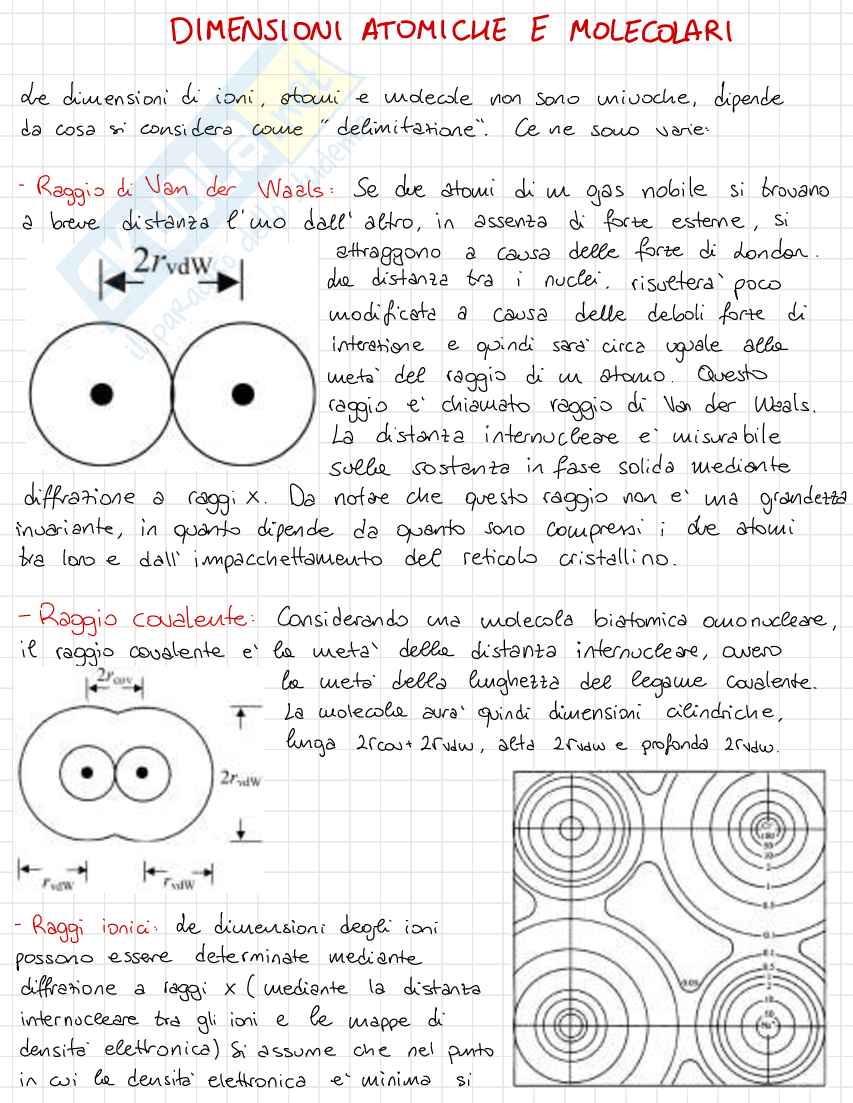 DIMENSIONI ATOMICHE E MOLECOLARI
Le dimensioni di ioni, atomi e molecole non sono univoche, dipende
da cosa si considera come "delimitazione". Ce ne sono varie:
- Raggio di Van der Waals: Se due atomi di un gas nobile si trovano
a breve distanza l'uno dall'altro, in assenza di forze esterne, si
attraggono a causa delle forze di London.
2rvdW
La distanza tra i nuclei, risulterà poco
modificata a causa delle deboli forze di
interazione e quindi sarà circa uguale alla
metà del raggio di un atomo. Questo
raggio è chiamato raggio di Van der Waals.
La distanza internucleare è misurabile
sulla sostanza in fase solida mediante
diffrazione a raggi X. Da notare che questo raggio non è una grandezza
invariante, in quanto dipende da quanto sono compressi i due atomi
tra loro e dall'impacchettamento del reticolo cristallino.
- Raggio covalente: Considerando una molecola biatomica omonucleare,
il raggio covalente è la metà della distanza internucleare, ovvero
2rcov
la metà della lunghezza del legame covalente.
La molecola avrà quindi dimensioni cilindriche,
lunga 2rcov + 2rvdw, alta 2rvdw e profonda 2rvdw.
2rvdW
rvdW rvdW
- Raggi ionici: Le dimensioni degli ioni
possono essere determinate mediante
diffrazione a raggi X (mediante la distanza
internucleare tra gli ioni e le mappe di
densità elettronica) Si assume che nel punto
in cui la densità elettronica è minima si
0.05
SKUOLA.net
il paradiso dello studente